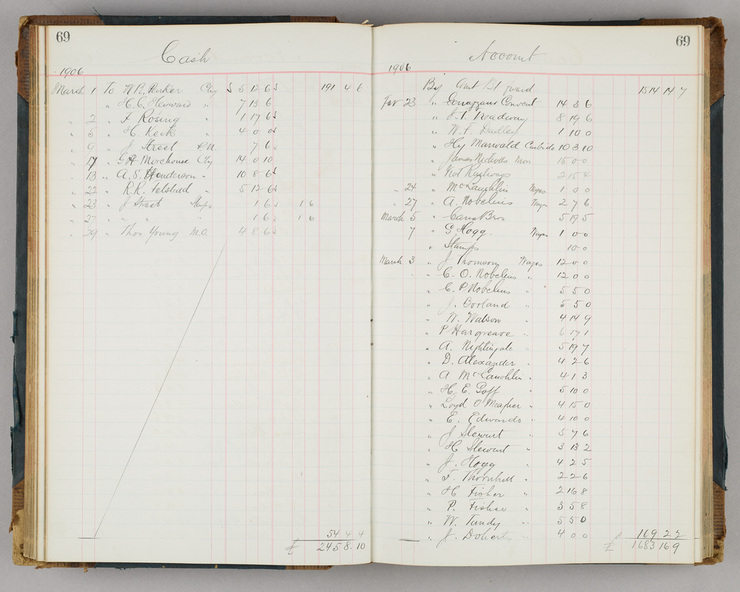 69
Cash
1906
March 1 To W.R. Parker Chq £ 5 12 6 191 4 6
" H.C. Howard " 7 13 6
" 2 " Rosing " 1 17 6
" 6 " H. Keck " 4 0 0
" 9 " J Street 7 6
" 17 " G.H. Morehouse Chq 14 0 10
" 13 " A.S. Henderson " 10 8 6
" 22 " R.K. " 5 12 6
" 23 " J Street Wages 1 6 1 6
" 27 " " 1 6 1 6
" 29 " Thos Young M.O. 4 8 6
54 4 9
£ 245 8 10
69
Account
1906
By Amt Bt forward 1514 14 7
23 " Convent 14 3 6
" 8 19 6
" W.F. 1 10 0
" Hy Marwald 10 3 10
" James 15 0 0
"
" 24 " McLaughlin Wages 1 0 0
" 27 " A. Novelius Wages 2 7 6
March 5 " Bros 5 19 5
7 " G. Hogg Wages 1 0 0
" Stamps 10 0
March 3 " J Wages 12 0 0
" C. O. Novelius " 12 0 0
" C. P. Novelius " 5 5 0
" J. Borland " 5 5 0
" W. Watson " 4 14 9
" P Hargreave " 6 17 1
" A. Nightingale " 5 19 7
" D. Alexander " 4 2 6
" A McLaughlin " 4 1 3
" H. E. Goff " 5 10 0
" Loyd O'Meagher " 4 15 0
" E. Edwards " 4 10 0
" J Stewart " 5 7 6
" H Stewart " 3 13 2
" J. Hogg " 4 2 5
" F Thornhill " 2 2 6
" H Fisher " 2 16 8
" P. Fisher " 3 5 8
" W. Tundy " 5 5 0
" J. Doherty " 4 0 0 169 2 2
£ 1683 16 9